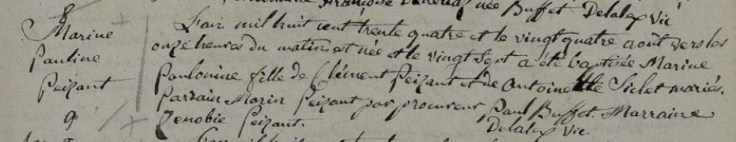 Françoise Deneriaz née Buffet Delalex Vic
Marine
Pauline
Peizant
9
L'an mil huit cent trente quatre et le vingt quatre août vers les
onze heures du matin est née et le vingt sept a été baptisée Marine
Paulouine fille de Clément Peizant et de Antoinette Sielet mariés.
Parrain Marin Peizant par procureur Paul Buffet. Marraine
Zenobie Peizant. Delalex Vic.